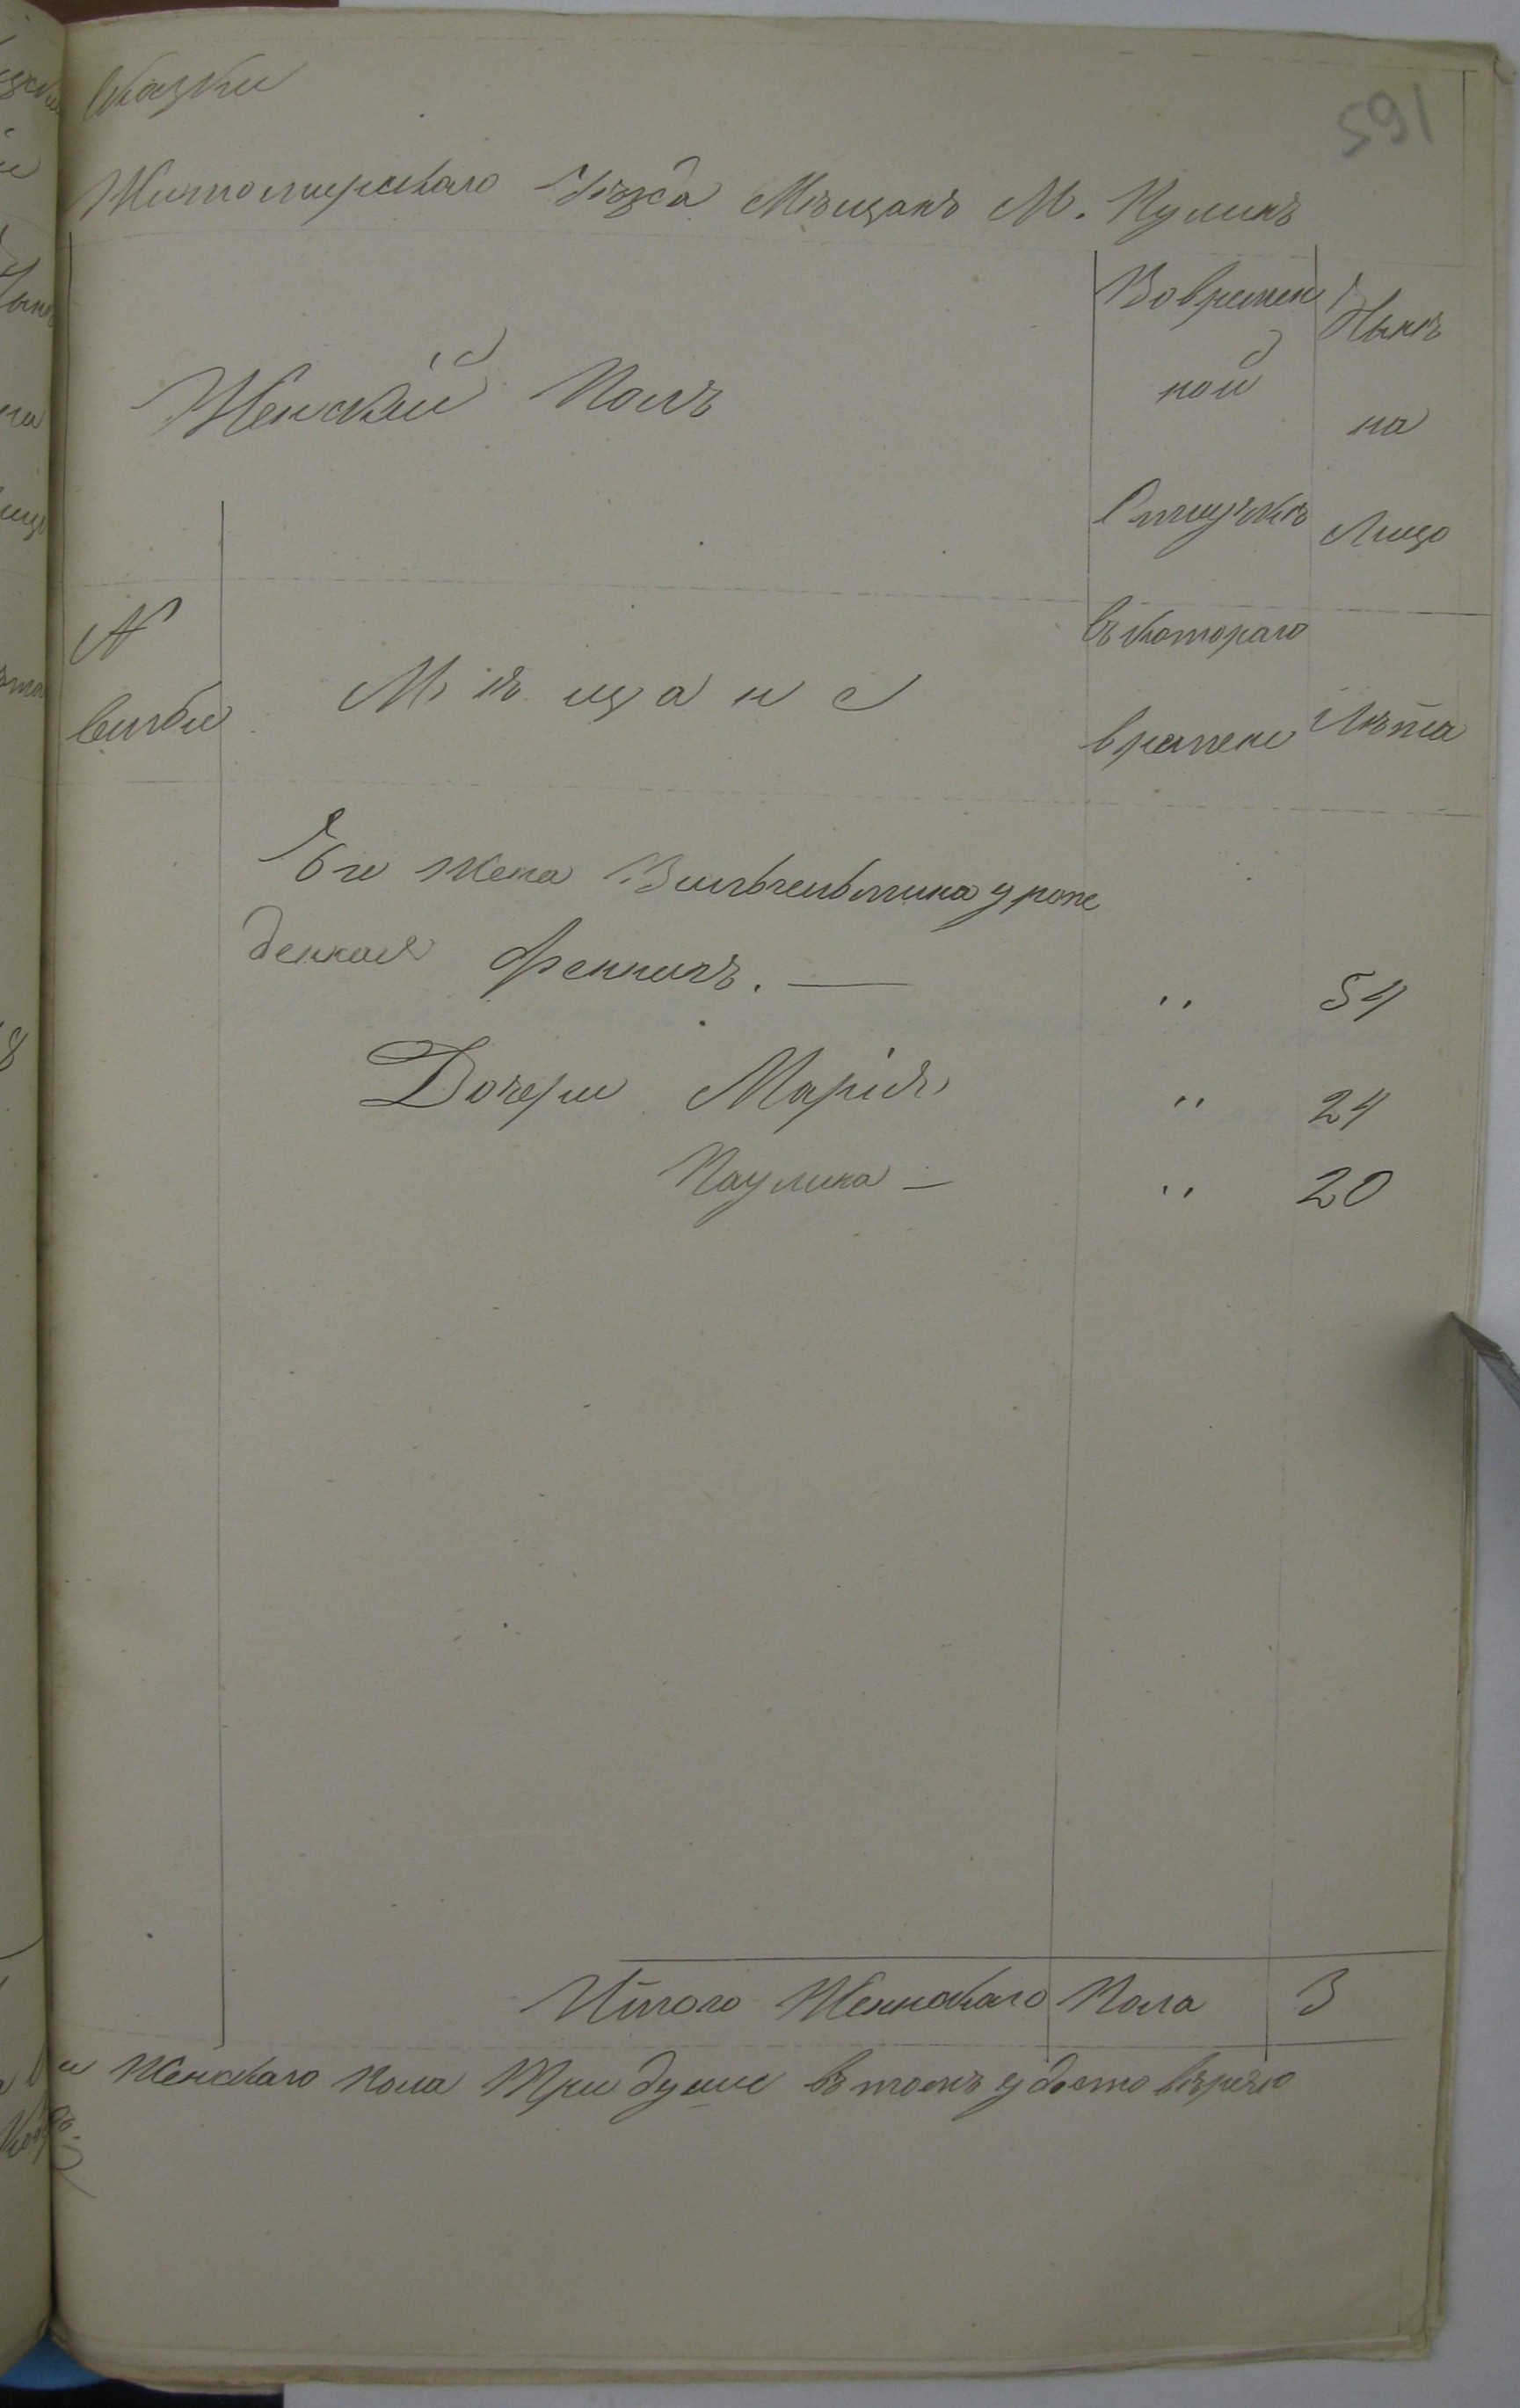 591
сказки
Житомирскаго Уѣзда Мѣщанъ М. Кулинъ
Женскій Полъ
Во времен
ной
Отлучкѣ
Нынѣ
на
Лицо
№
семьи
Мѣщане
Съ котораго
времени
Лѣта
Его жена Вильгельмина урож
денная Френкель. —
" 54
Дочери Марія " 24
Паулина — " 20
Итого Женскаго Пола 3
и Женскаго пола Три души въ томъ удостовѣряю